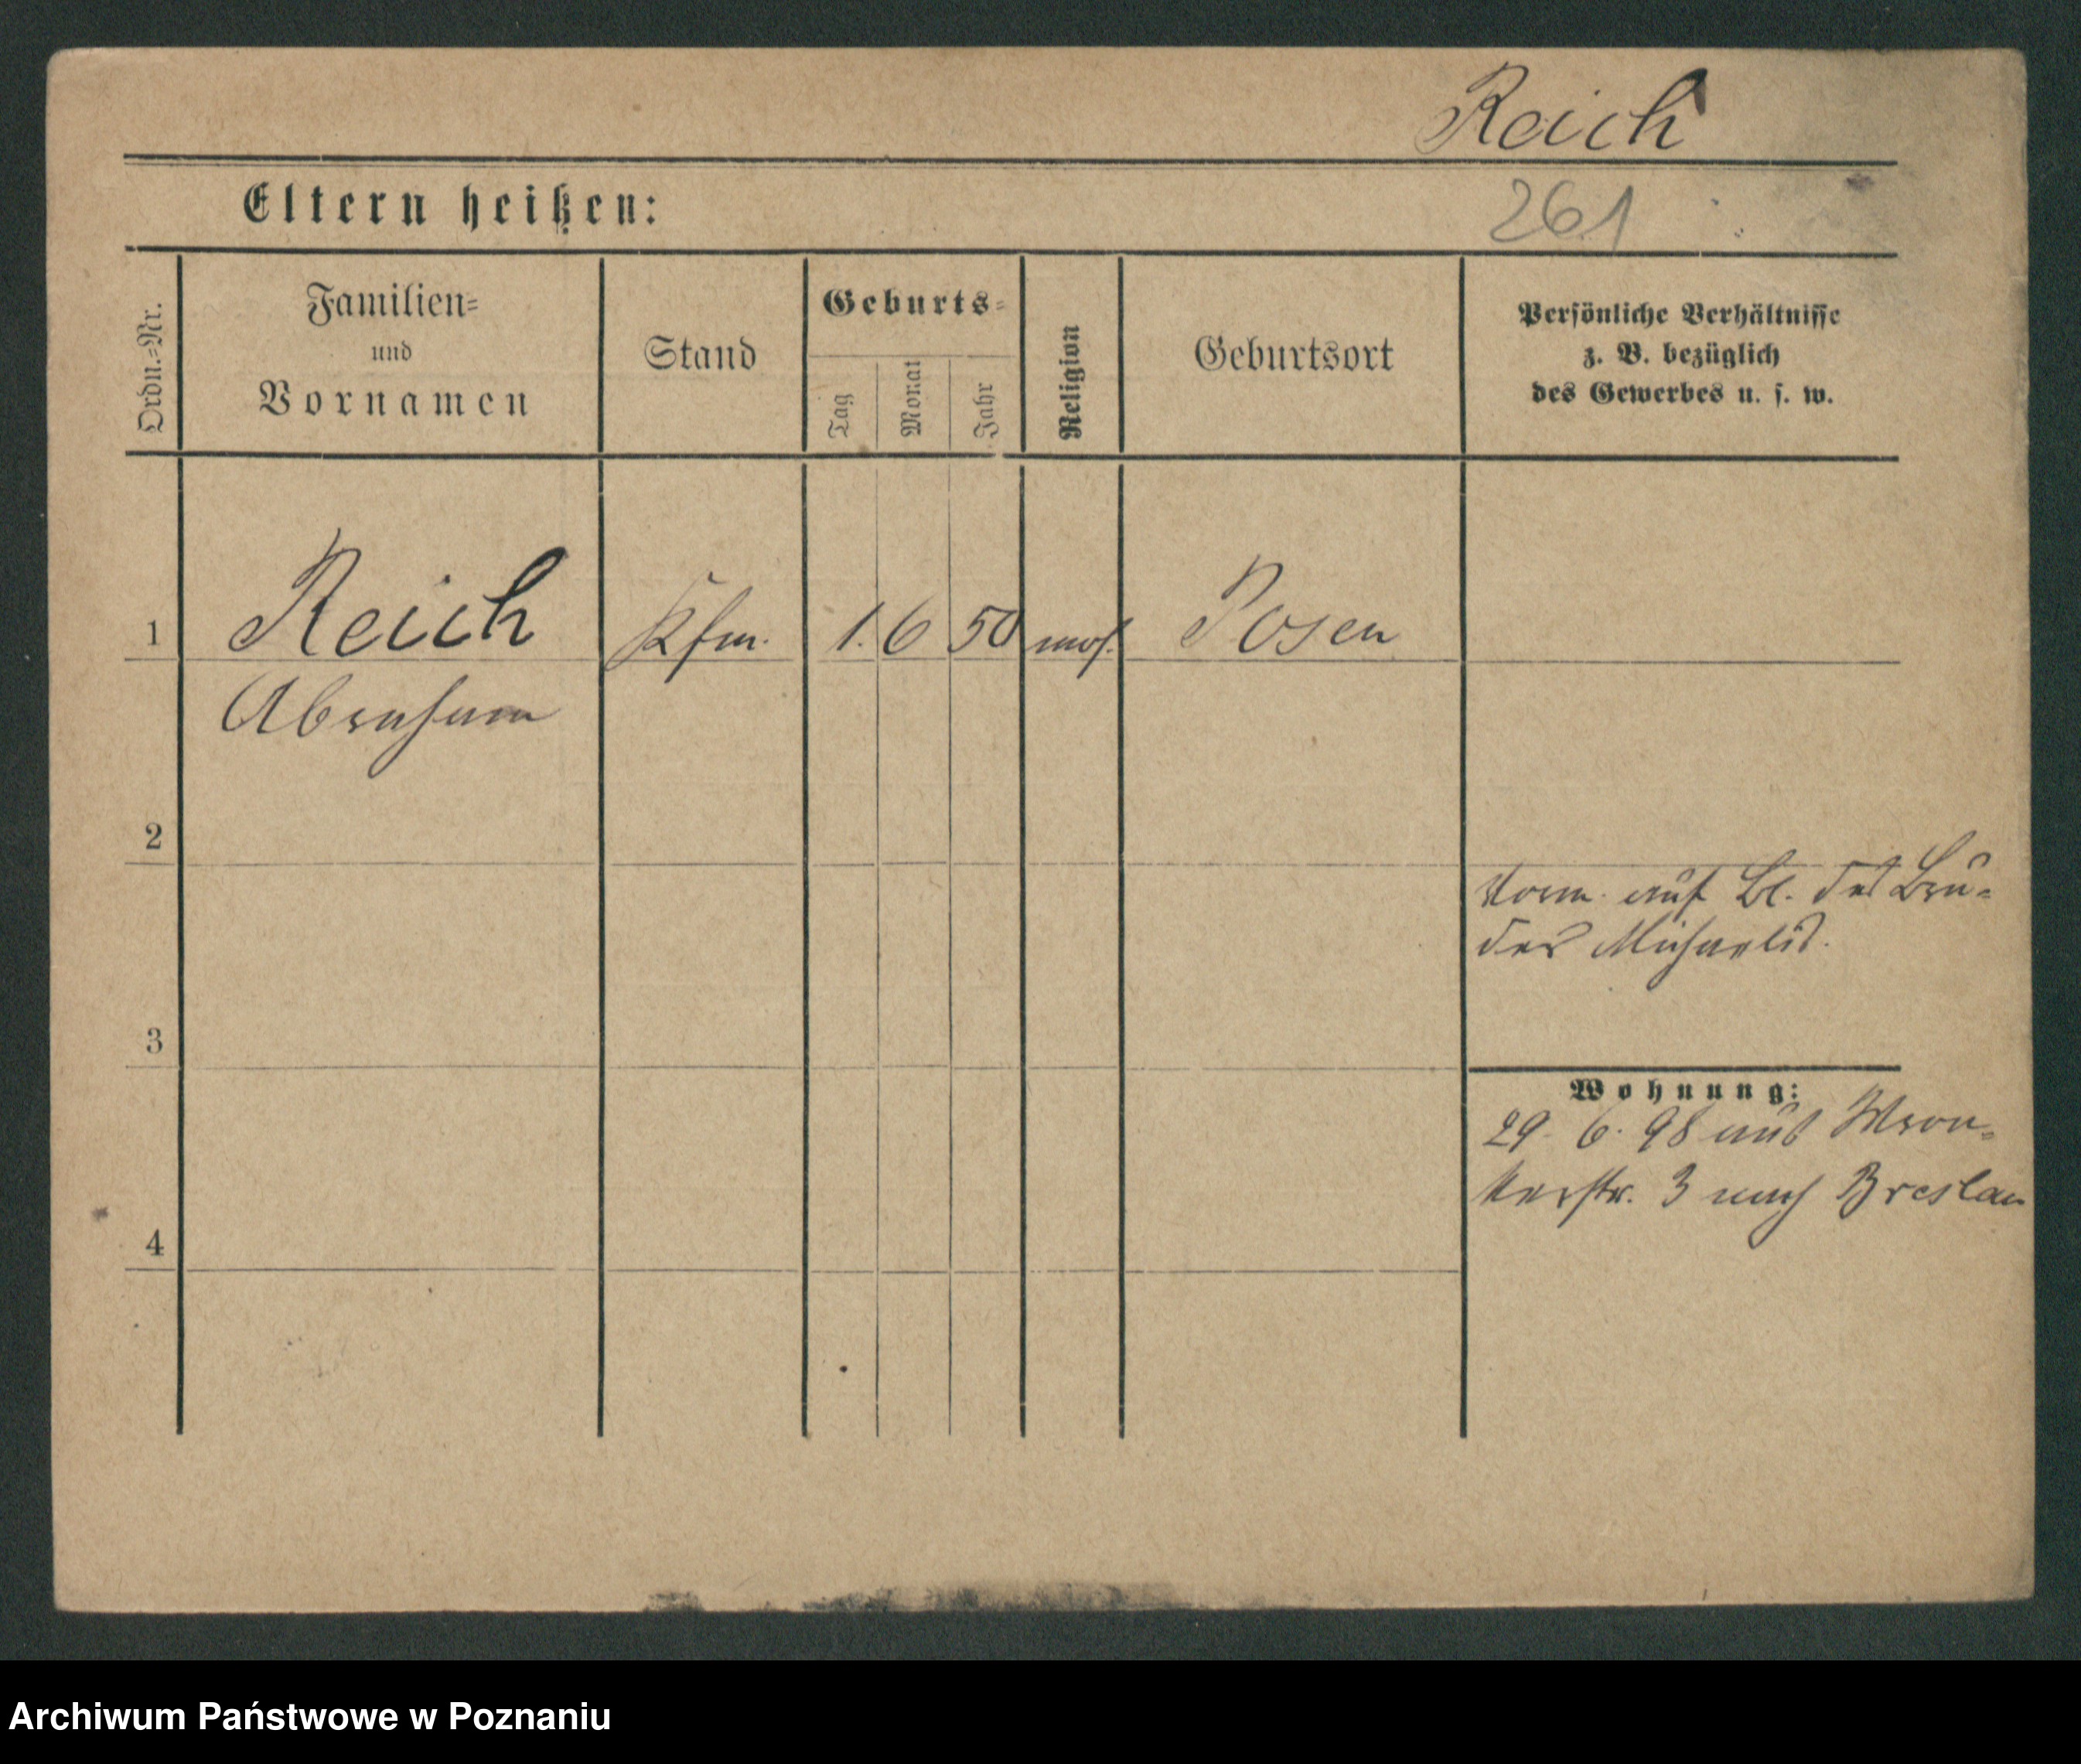 Reich
Eltern heißen:
261
Ordn.=Nr.
Familien=
und
Vornamen
Stand
Geburts=
Tag
Monat
Jahr
Religion
Geburtsort
Persönliche Verhältnisse
z. B. bezüglich
des Gewerbes u. s. w.
1
Reich
Kfm.
1. 6 50
mos.
Posen
Abraham
2
Vorm. auf Bl. des Bru-
ders Michaelis.
3
Wohnung:
29. 6. 98 aus Wron-
kerstr. 3 nach Breslau
4
Archiwum Państwowe w Poznaniu